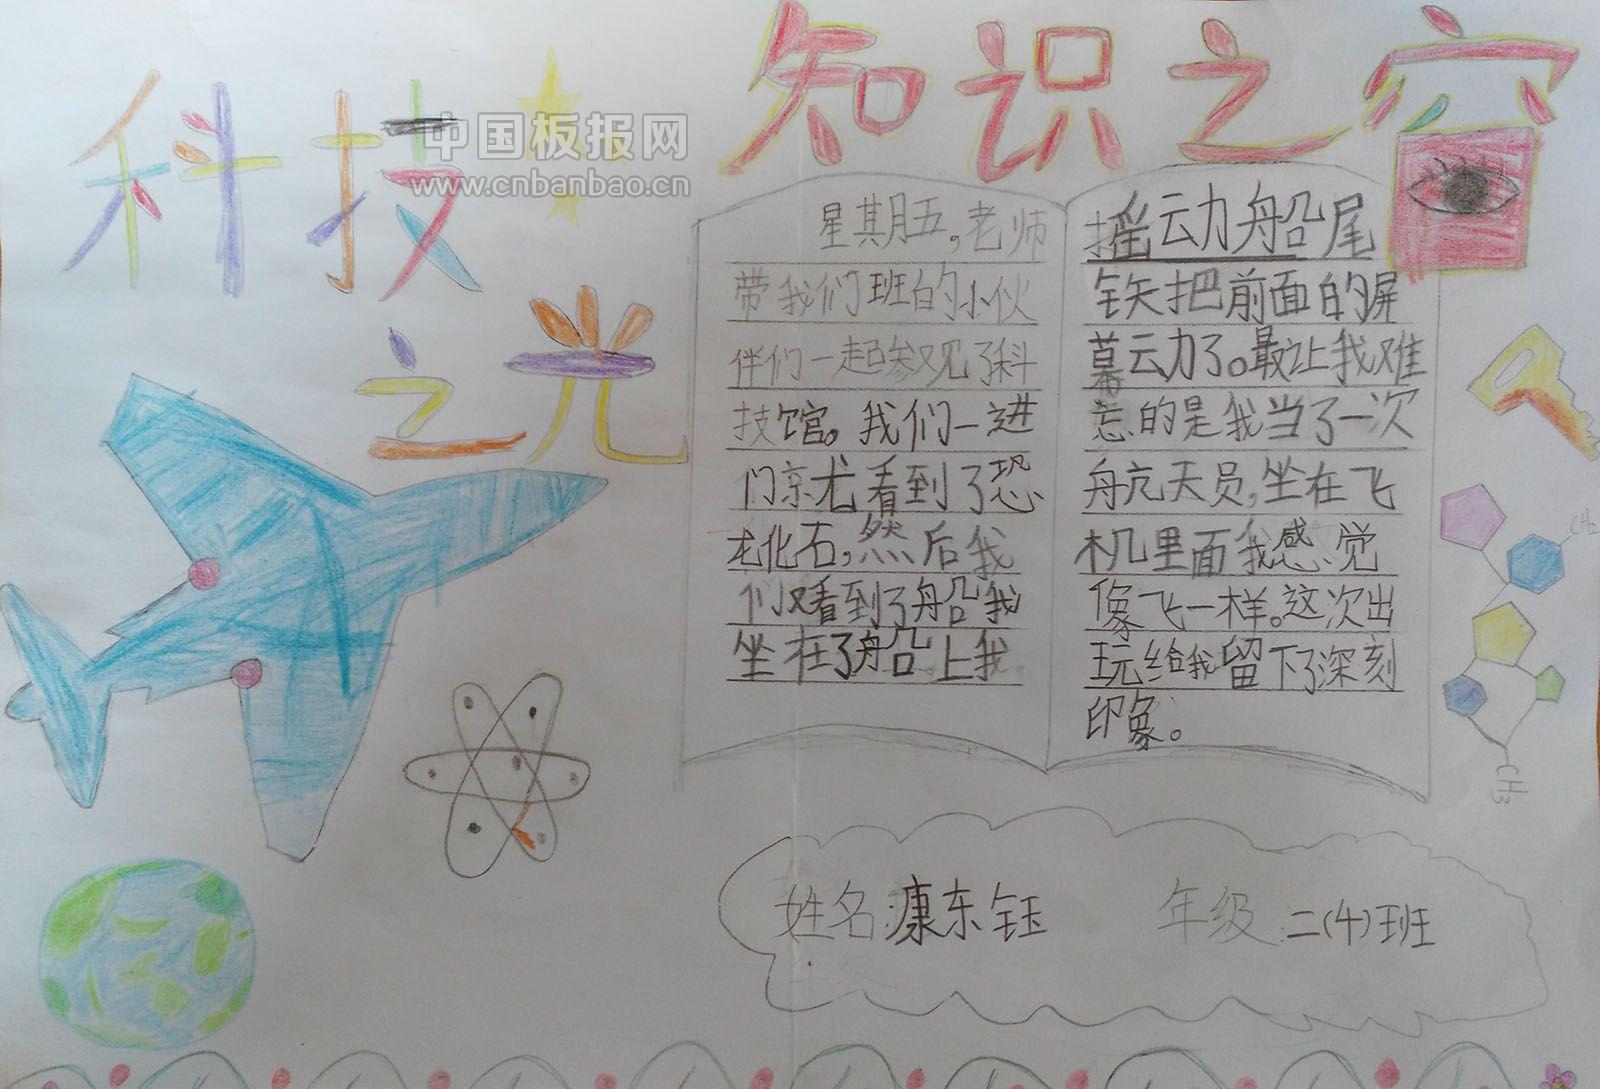 科技
之光
知识之窗
中国板报网
www.cnbanbao.cn
星期五,老师
带我们班的小伙
伴们一起参观了科
技馆。我们一进
门就看到了恐
龙化石,然后我
们又看到了船我
坐在了船上我
摇动船尾
铁把前面的屏
幕动了。最让我难
忘的是我当了一次
航天员,坐在飞
机里面我感觉
像飞一样。这次出
玩给我留下了深刻
印象。
CH₂
CH3
姓名:康东钰 年级:二(4)班